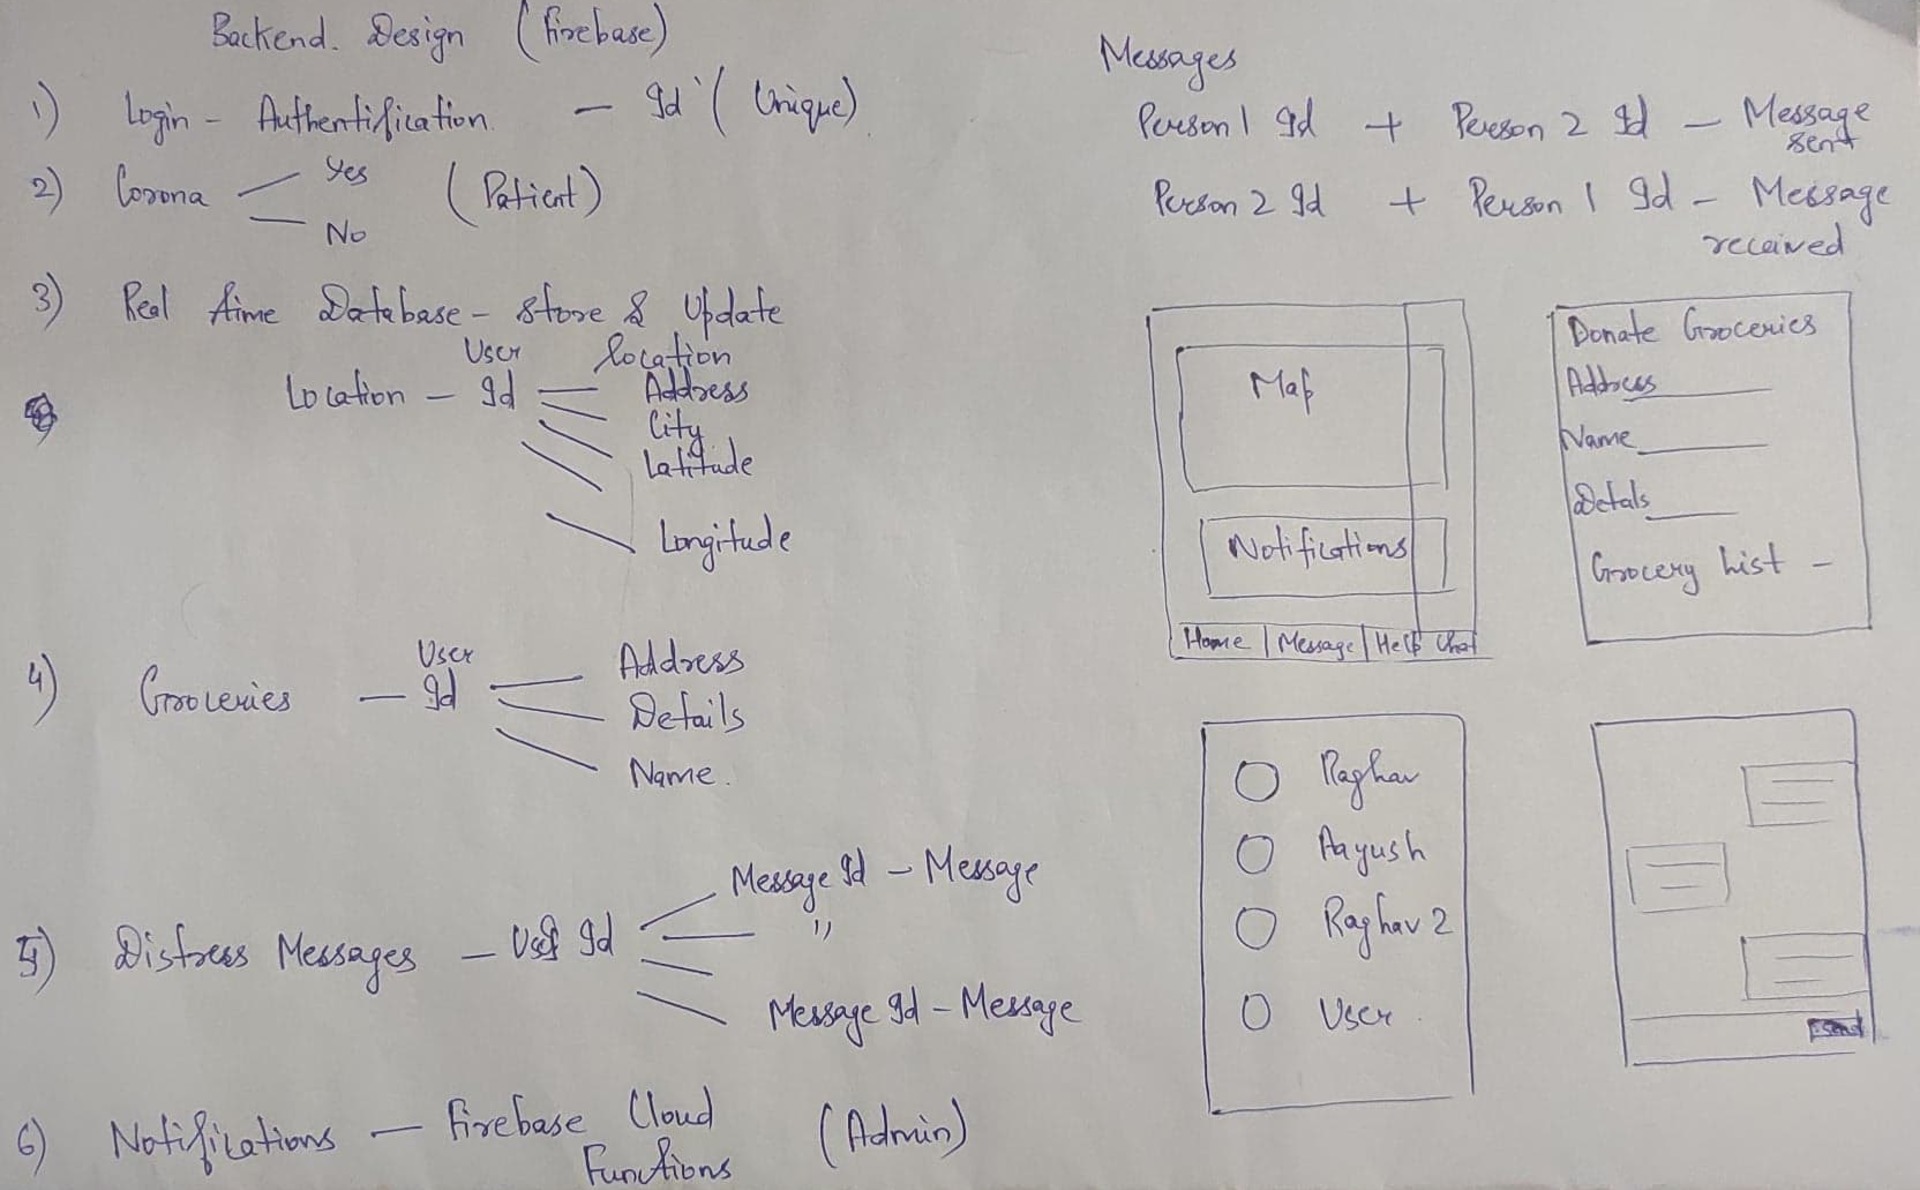 Backend. Design (firebase)
1) Login - Authentification. - Id (Unique)
2) Corona - Yes (Patient)
- No
3) Real time Database - store & Update
User location
Location - Id - Address
City
Latitude
Longitude
4) Groceries - User Id - Address
Details
Name.
5) Distress Messages - User Id - Message Id - Message
"
Message Id - Message
6) Notifications - Firebase Cloud Functions (Admin)
Messages
Person 1 Id + Person 2 Id - Message sent
Person 2 Id + Person 1 Id - Message received
Map
Notifications
Home | Message | Help Chat
Donate Groceries
Address
Name
Detals
Grocery List -
Raghav
Aayush
Raghav 2
User
Send